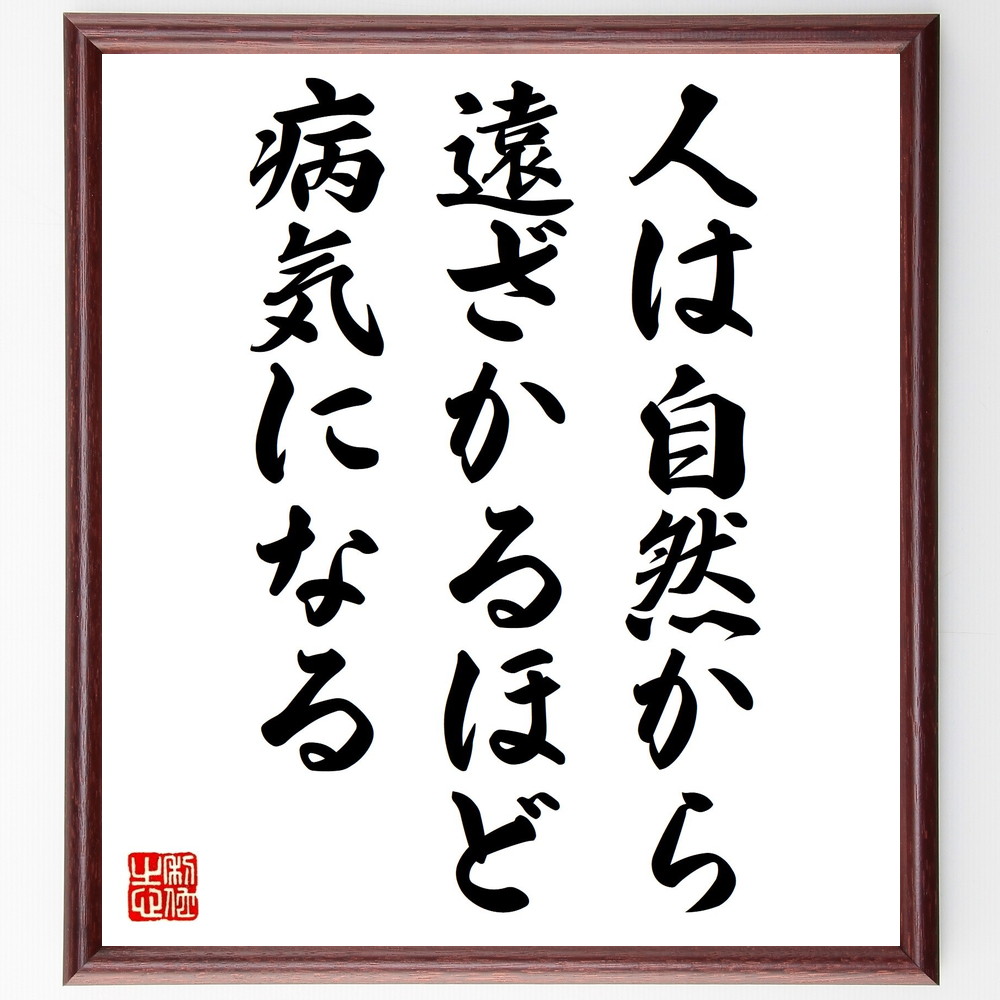 人は自然から
遠ざかるほど
病気になる